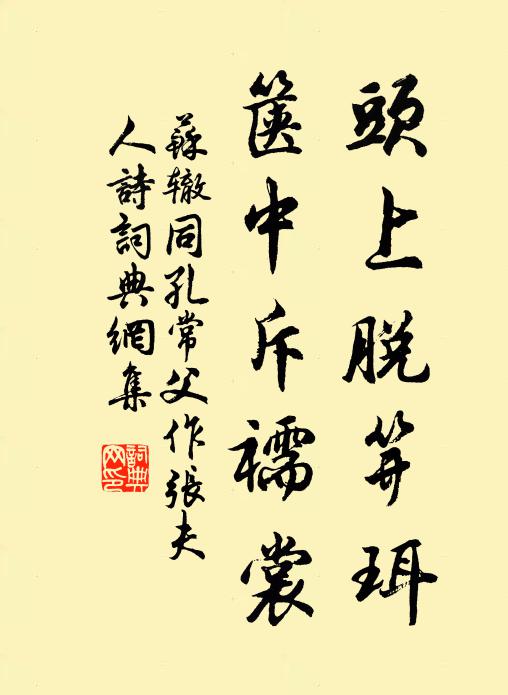 頭上脱笄珥
篋中斥襦裳
蘇辙同孔常父作張夫
人詩詞典網集
詞典
网印